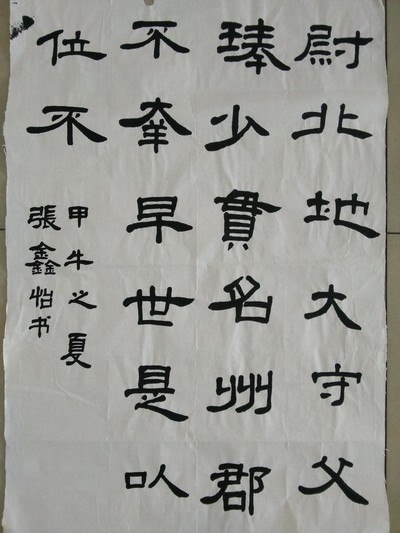 尉北地大守父
琫少貫名州郡
不幸早世是以
位不
甲午之夏
張鑫怡书